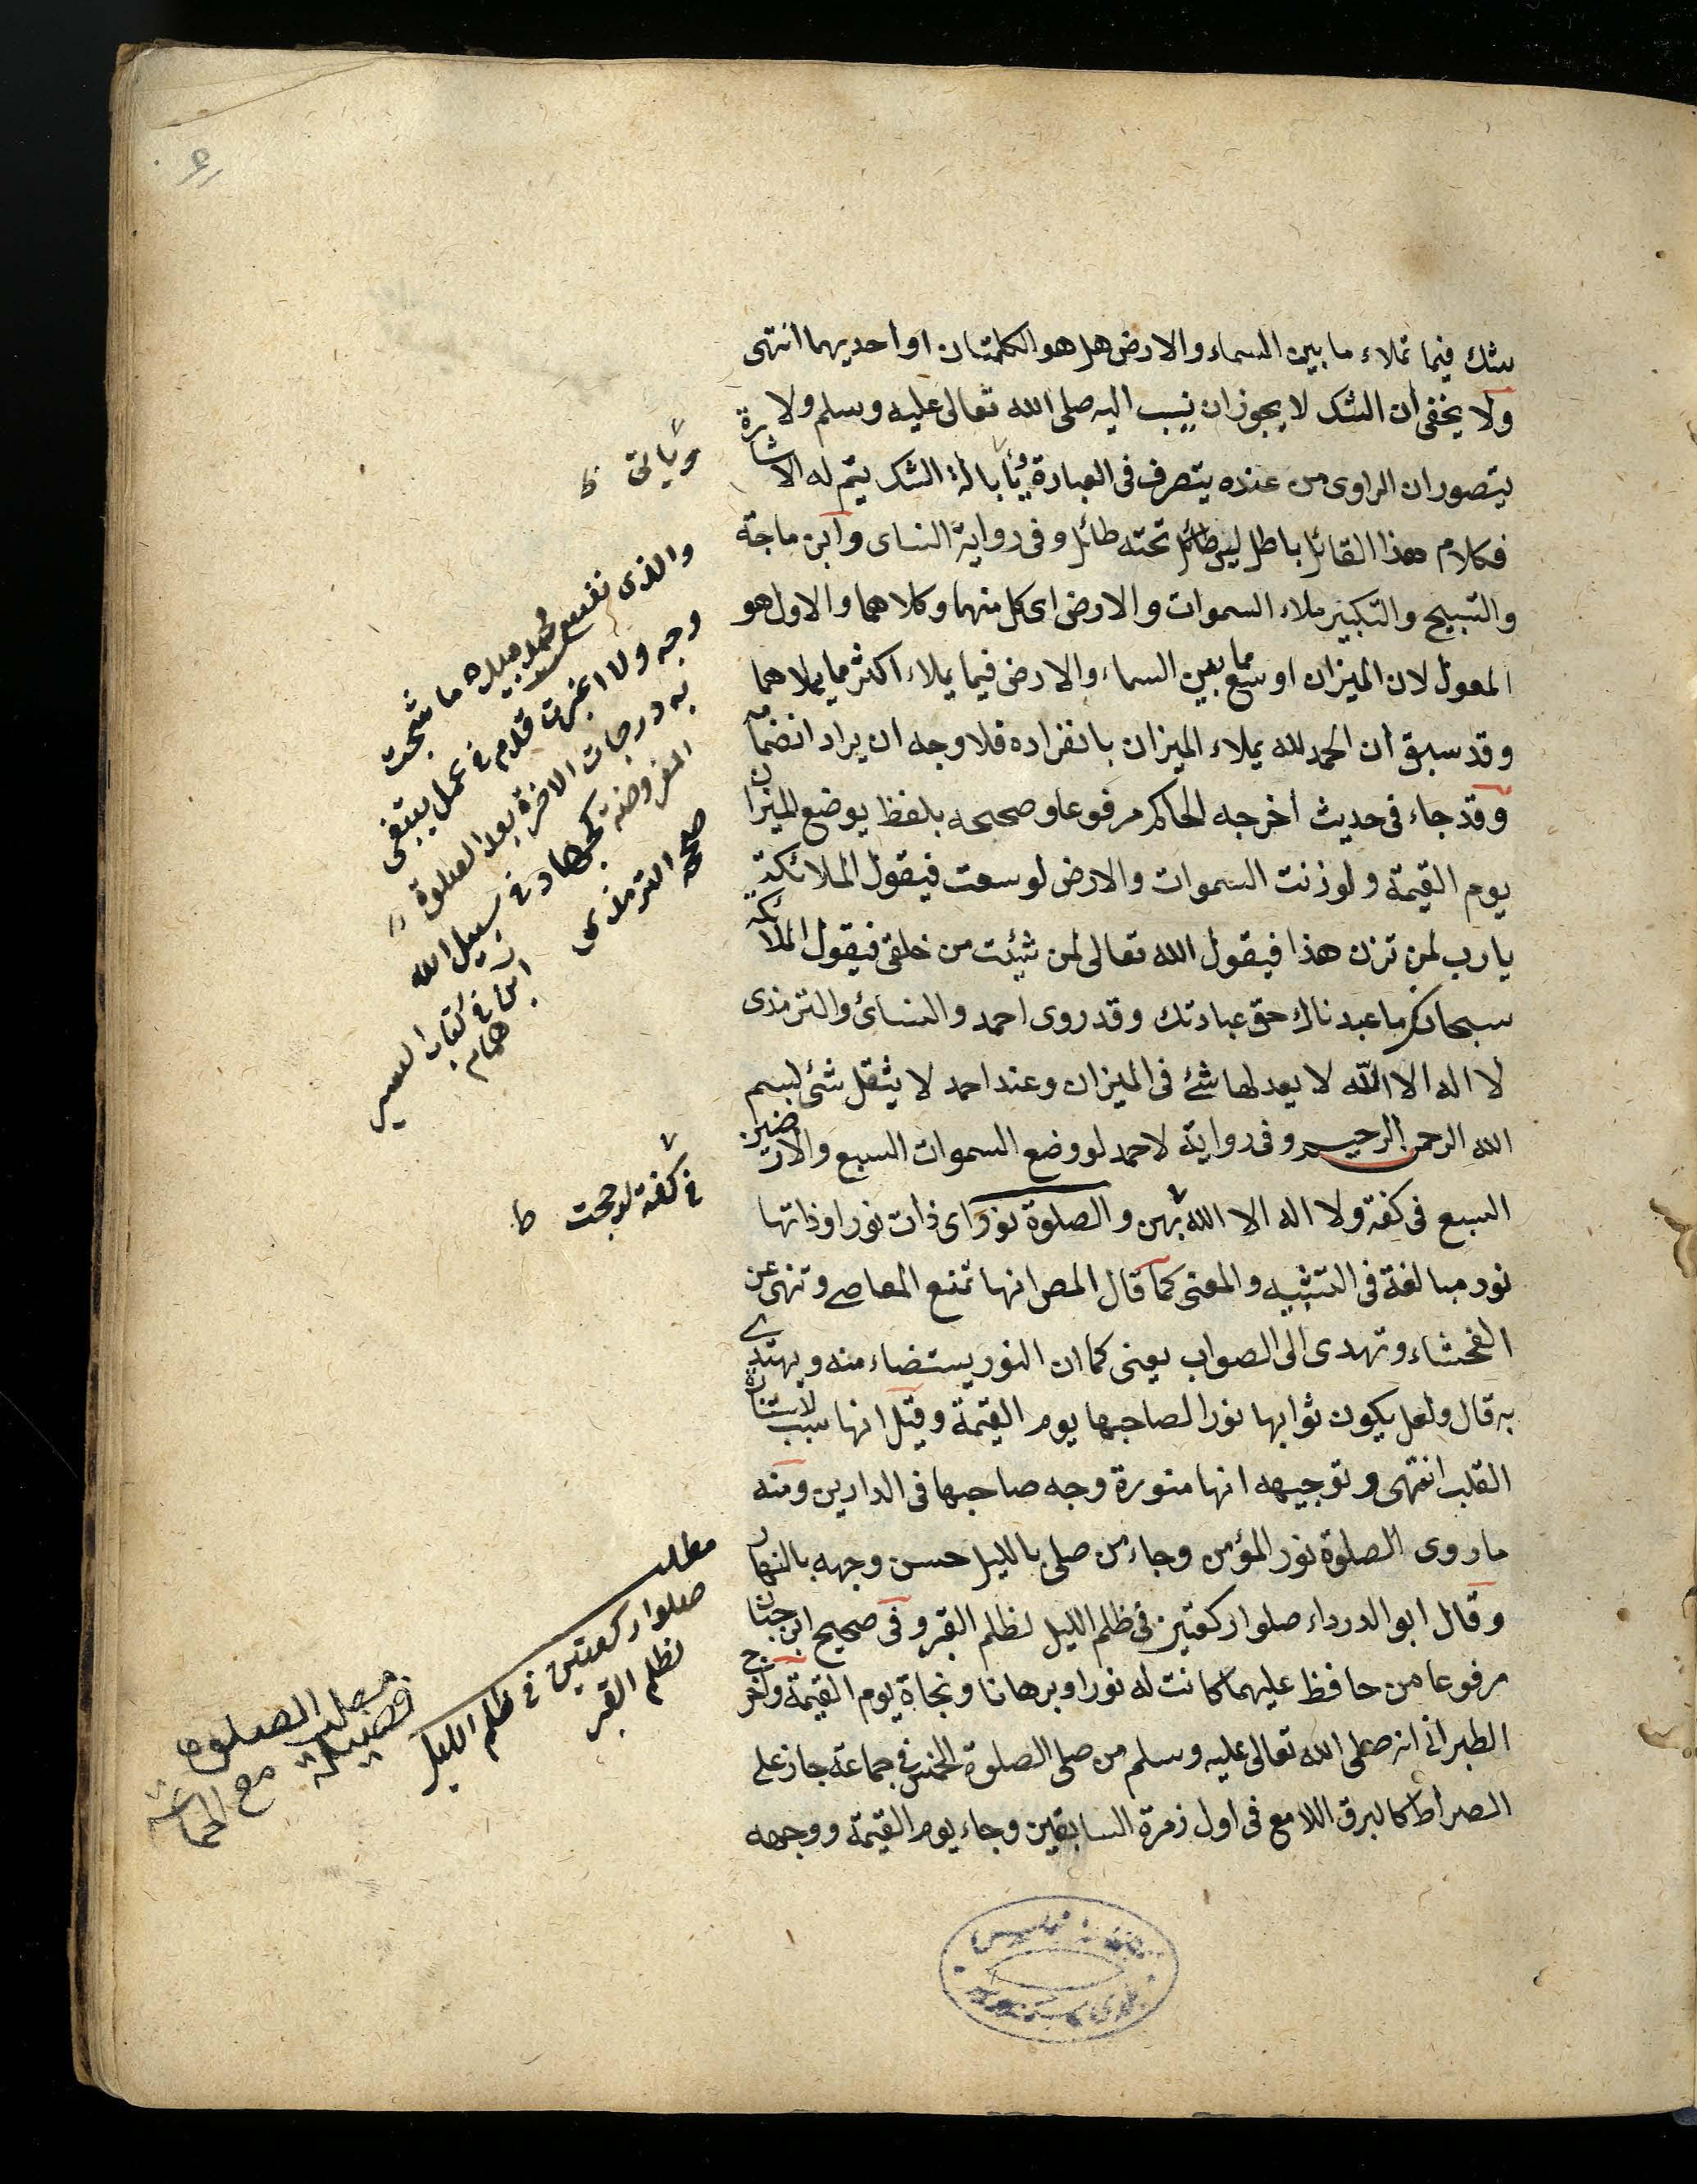 شك فيما تملاء ما بين السماء والارض هل هو الكلمتان او احديهما انتهى
ولا يخفى ان الشك لا يجوز ان ينسب اليه صلى الله تعالى عليه وسلم ولا
يتصور ان الراوى من عنده يتصرف فى العبارة باداة الشك يتم له الاشارة
فكلام هذا القائل باطل ليس تحته طائل وفى رواية النساى وابن ماجة
والتسبيح والتكبير ملاء السموات والارض اى كل منهما وكلاهما والاول هو
المعول لان الميزان اوسع مما بين السماء والارض فيما يملاء اكثر مما يملاهما
وقد سبق ان الحمد لله يملاء الميزان بانفراده فلا وجه ان يراد انضمامه
وقد جاء فى حديث اخرجه الحاكم مرفوعا وصححه بلفظ يوضع الميزان
يوم القيمة ولو زنت السموات والارض لوسعت فيقول الملائكة
يا رب لمن تزن هذا فيقول الله تعالى لمن شئت من خلقى فيقول الملائكة
سبحانك ما عبدناك حق عبادتك وقد روى احمد والنسائ والترمذى
لا اله الا الله لا يعدلها شئ فى الميزان وعند احمد لا يثقل شئ بسم
الله الرحمن الرحيم وفى رواية لاحمد لو وضع السموات السبع والارضين
السبع فى كفة ولا اله الا الله بهن والصلوة نور اى ذات نور او ذاتها
نور مبالغة فى التشبيه والمعنى كما قال المص انها تمنع المعاصے وتنهى عن
الفحشاء وتهدى الى الصواب يعنى كما ان النور يستضاء منه ويهتدے
به قال ولعل يكون ثوابها نورا لصاحبها يوم القيمة وقيل انها سبب لاستنارة
القلب انتهى وتوجيهه انها منورة وجه صاحبها فى الدارين ومنه
ما روى الصلوة نور المؤمن وجاء من صلى بالليل حسن وجهه بالنهار
وقال ابو الدرداء صلوا ركعتين فى ظلم الليل لظلم القبر وفى صحيح ابن حبان
مرفوعا من حافظ عليهما كانت له نورا وبرهانا ونجاة يوم القيمة واخرج
الطبرانى انه صلى الله تعالى عليه وسلم من صلى الصلوة الخمس فى جماعة جاز على
الصراط كالبرق اللامع فى اول زمرة السابقين وجاء يوم القيمة ووجهه
والذى نفس محمد بيده ما شحبت
وجه ولا اغبرت قدم فى عمل يبتغى
به درجات الاخرة بعد الصلوة
المفروضة كجهاد فى سبيل الله
صححه الترمذى
ابن همام
فى كتاب السير
فى كفة لرجحت ط
مطلب
صلوا ركعتين فى ظلم الليل
لظلم القبر
مطلب
فضيلة الصلوة
مع الجماعة